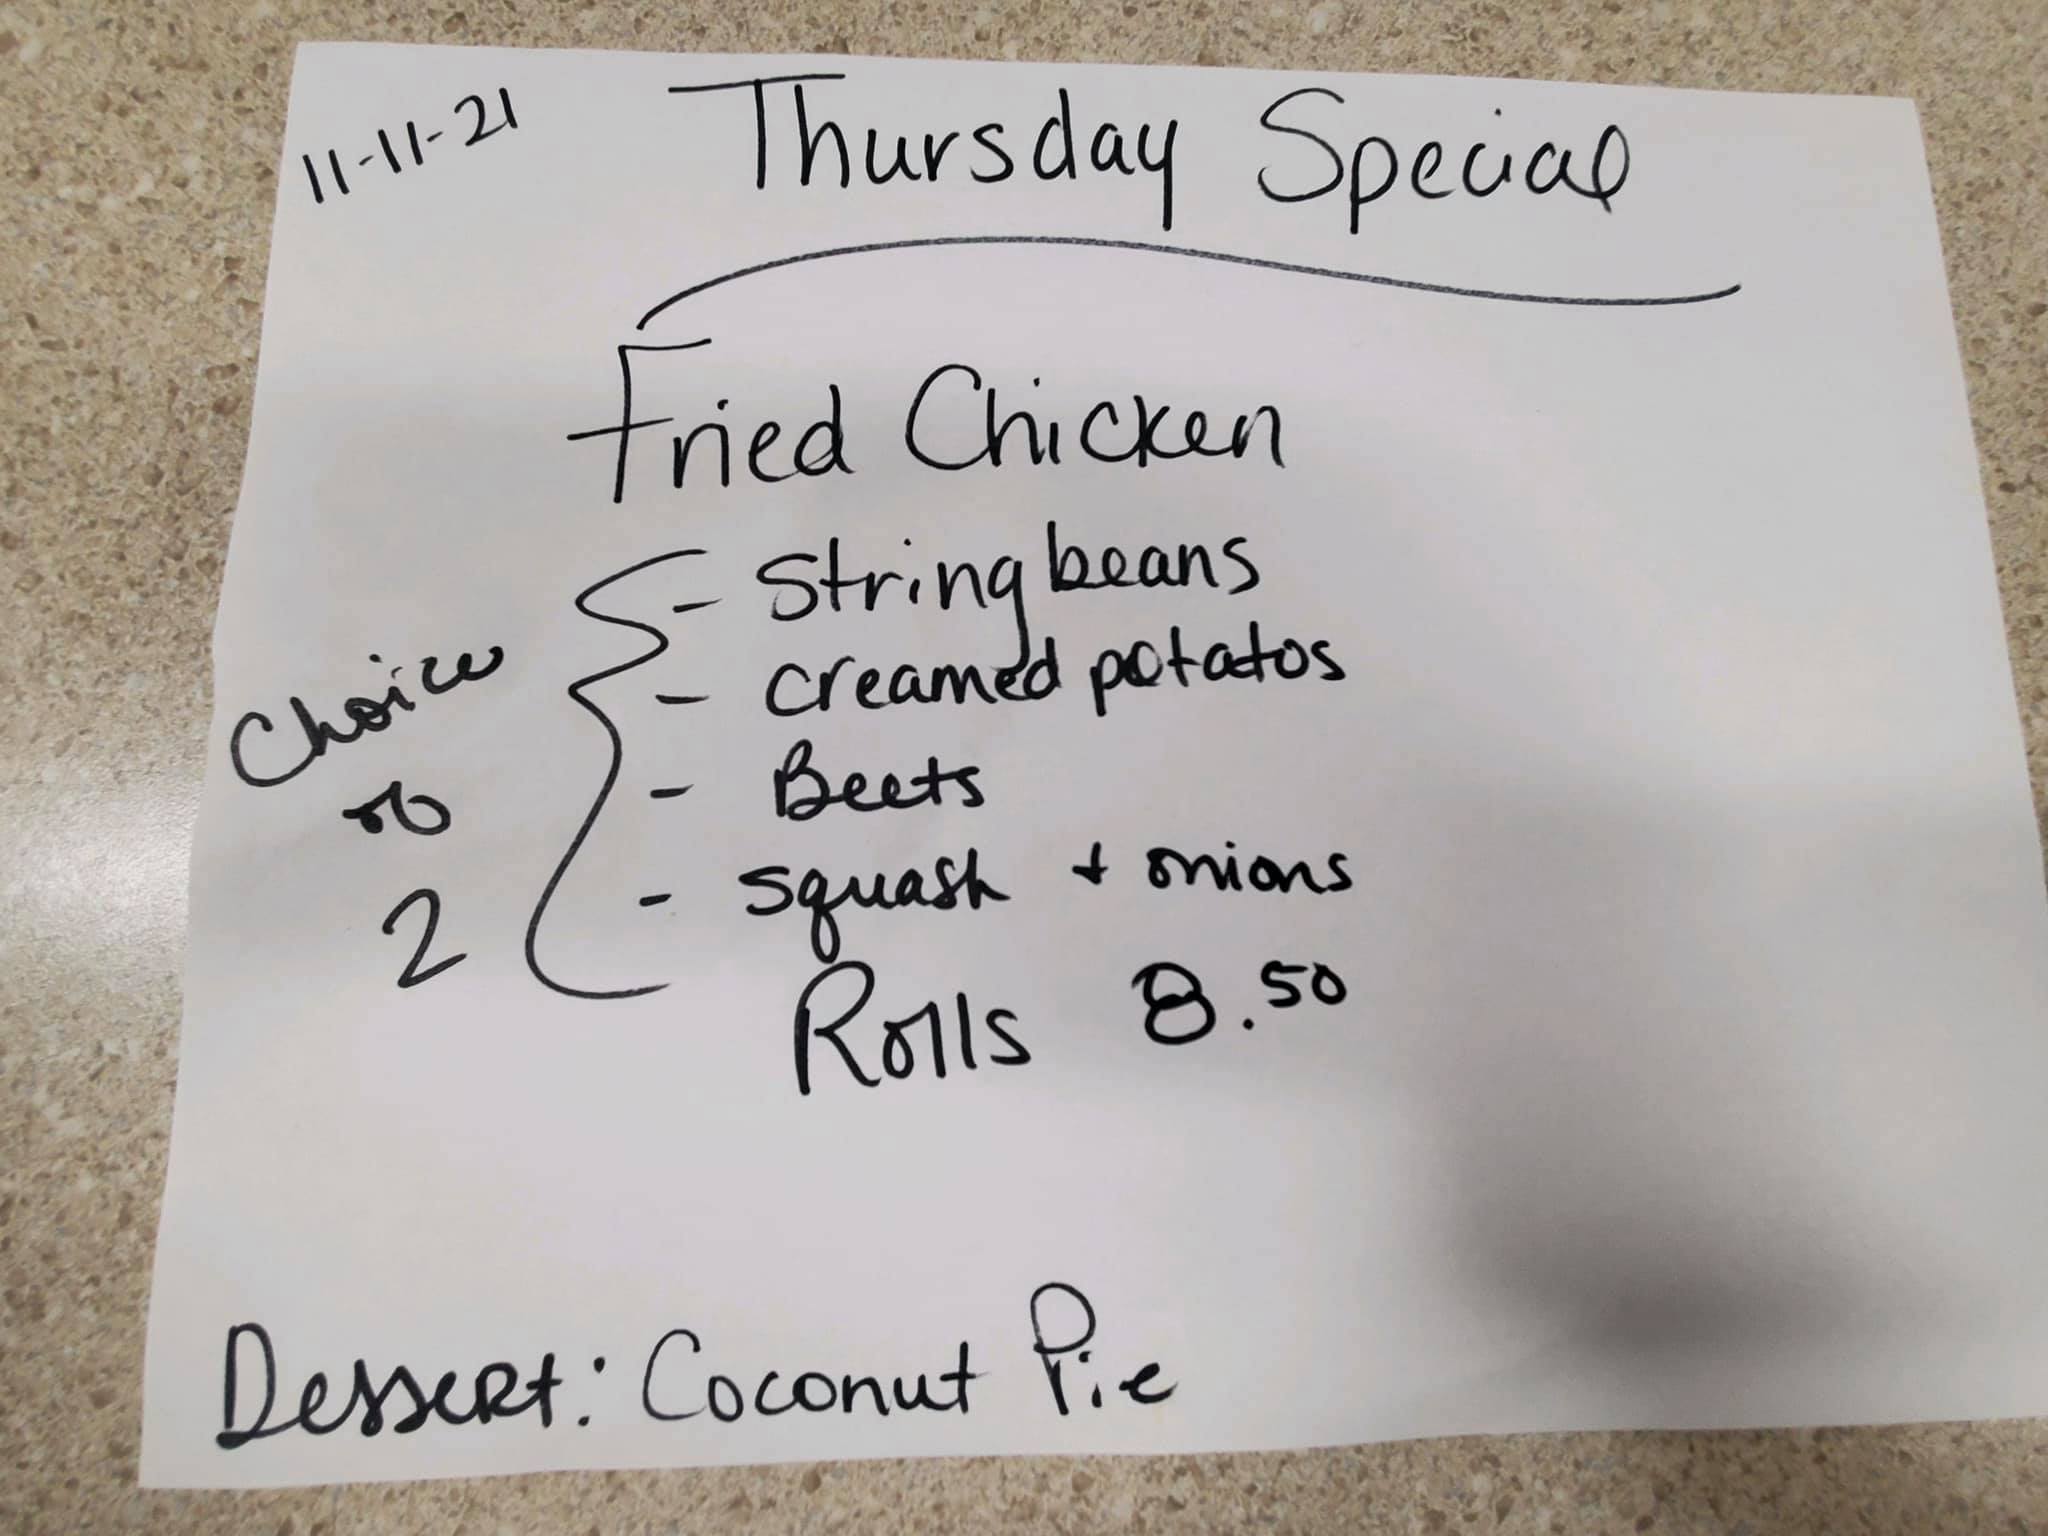 11-11-21
Thursday Special
Fried Chicken
Choice
of
2
- String beans
- creamed potatos
- Beets
- squash + onions
Rolls 8.50
Dessert: Coconut Pie